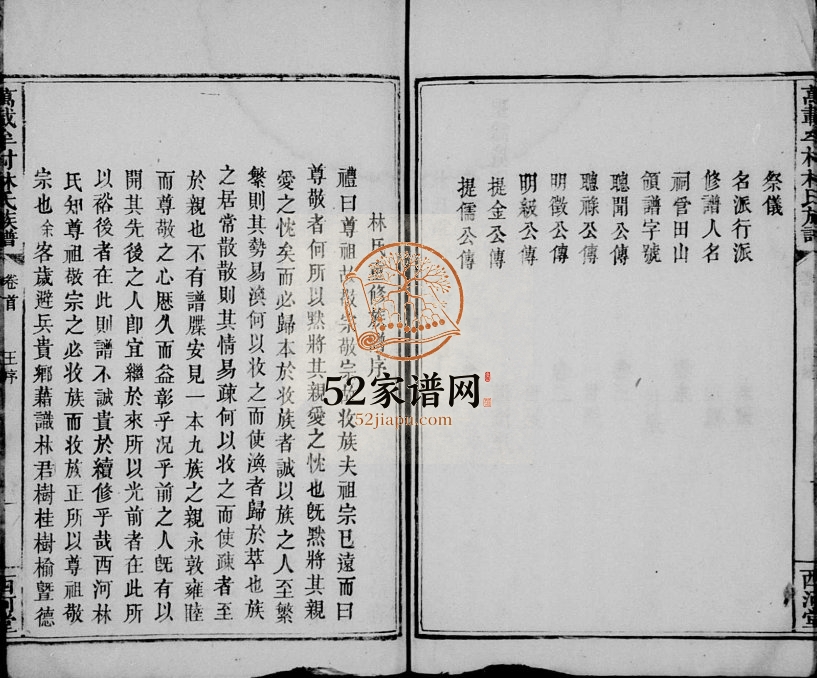 祭儀
名派行派
修譜人名
祠管田山
領譜字號
聰聞公傳
聰祿公傳
明徵公傳
明級公傳
提金公傳
提儒公傳
西河堂
林氏重修族譜序
禮曰尊祖故敬宗敬宗故收族夫祖宗已遠而曰
尊敬者何所以黙將其親愛之忱也旣黙將其親
愛之忱矣而必歸本於收族者誠以族之人至繁
繁則其勢易渙何以收之而使渙者歸於萃也族
之居常散散則其情易疎何以收之而使疎者至
於親也不有譜牒安見一本九族之親永敦雍睦
而尊敬之心厯久而益彰乎况乎前之人旣有以
開其先後之人卽宜繼於來所以光前者在此所
以裕後者在此則譜不誠貴於續修乎哉西河林
氏知尊祖敬宗之必收族而收族正所以尊祖敬
宗也余客歲避兵貴鄉藉識林君樹桂樹榆曁德
林氏族譜
卷首
王序
西河堂
52家谱网
52jiapu.com